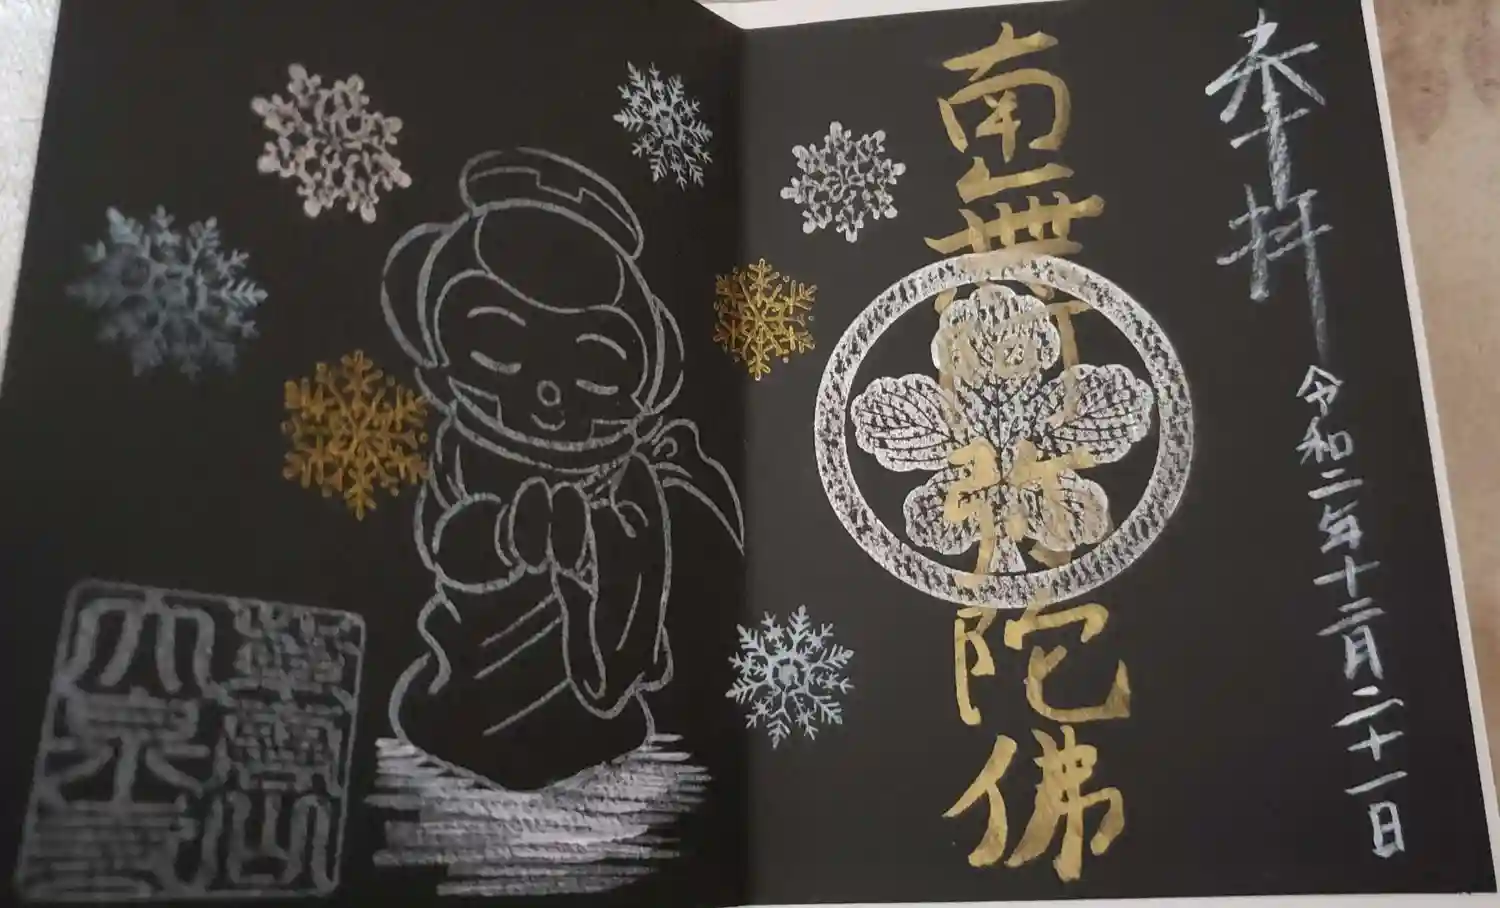 奉拝
令和二年十二月二十一日
南無阿弥陀佛